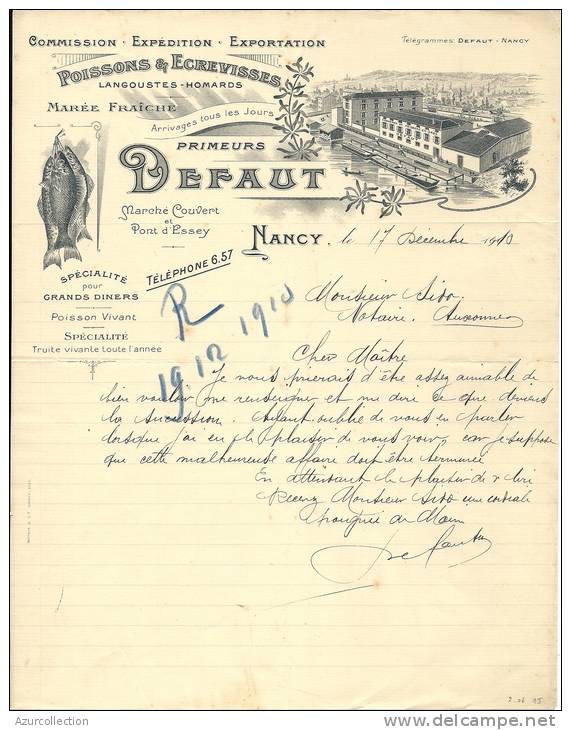 COMMISSION · EXPÉDITION · EXPORTATION
Télégrammes: DEFAUT - NANCY
POISSONS & ECREVISSES
LANGOUSTES - HOMARDS
MARÉE FRAÎCHE
Arrivages tous les Jours
PRIMEURS
DEFAUT
Marché Couvert
et
Pont d'Essey
TÉLÉPHONE 6.57
NANCY, le 17 Décembre 1910
SPÉCIALITÉ
pour
GRANDS DINERS
Poisson Vivant
SPÉCIALITÉ
Truite vivante toute l'année
R
19 12 1910
Monsieur
Notaire. Auxonne
Cher Maître
Je vous prierais d'être assez aimable de
bien vouloir me renseigner et me dire ce que devient
la succession. Ayant oublié de vous en parler
lorsque j'ai eu le plaisir de vous voir, car je suppose
que cette malheureuse affaire doit être terminée
En attendant le plaisir de v lire
Recevez Monsieur une cordiale
poignée de Main
Azurcollection
delcampe.net